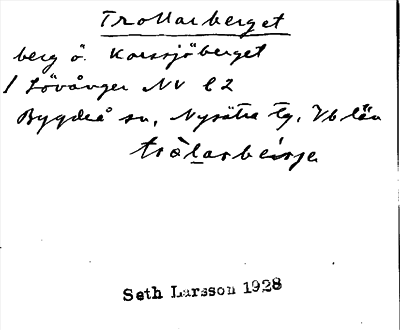 Trollarberget
berg ö. Korssjöberget
1 Lövånger NV b2
Bygdeå sn, Nysätra tg, Vb län
tròlarbérje
Seth Larsson 1928